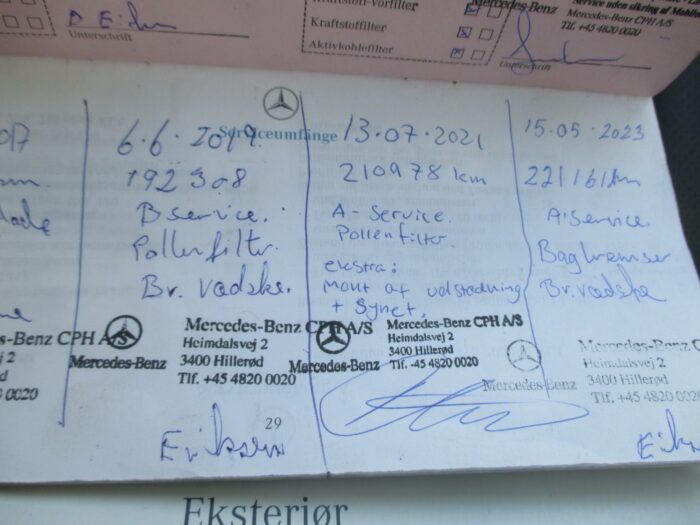 Kraftstoff-Vorfilter
Mercedes-Benz
Service uden sikring af
Mercedes-Benz CPH A/S
Tlf. +45 4820 0020
Kraftstoffilter
Aktivkohlefilter
Unterschrift
Unterschrift
Serviceumfänge
6.6.2019.
192308
B service.
Pollenfilter.
Br. vædske.
Mercedes-Benz CPH A/S
Heimdalsvej 2
3400 Hillerød
Tlf. +45 4820 0020
Mercedes-Benz
Eriksen
13.07.2021
210978 km
A-Service.
Pollenfilter.
ekstra:
Mont af udstødning
+ Synet.
Mercedes-Benz CPH A/S
Heimdalsvej 2
3400 Hillerød
Tlf. +45 4820 0020
Mercedes-Benz
15.05.2023
221161km
A-Service.
Bagbremser
Br. vædske
Mercedes-Benz CPH A/S
Heimdalsvej 2
3400 Hillerød
Tlf. +45 4820 0020
Mercedes-Benz
29
Eksteriør